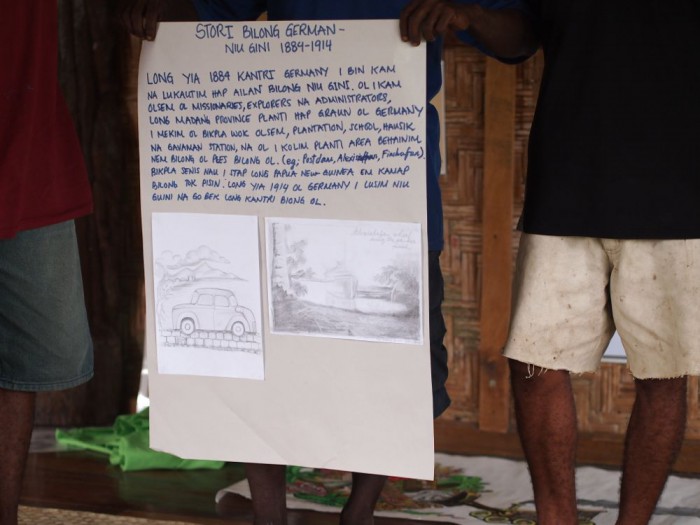 STORI BILONG GERMAN-
NIU GINI 1884-1914
LONG YIA 1884 KANTRI GERMANY I BIN KAM
NA LUKAUTIM HAP AILAN BILONG NIU GINI. OL I KAM
OLSEM OL MISSIONARIES, EXPLORERS NA ADMINISTRATORS,
LONG MADANG PROVINCE PLANTI HAP GRAUN OL GERMANY
I MEKIM OL BIKPLA WOK OLSEM, PLANTATION, SCHOOL, HAUSIK
NA GAVAMAN STATION, NA OL I KOLIM PLANTI AREA BEHAINIM
NEM BILONG OL PLES BILONG OL. (eg; Postdam, Finchafen).
BIKPLA SENIS NAU I STAP LONG PAPUA NEW GUINEA EM KAMAP
BILONG TOK PISIN. LONG YIA 1914 OL GERMANY I LUSIN NIU
GUINI NA GO BEK LONG KANTRI BILONG OL.